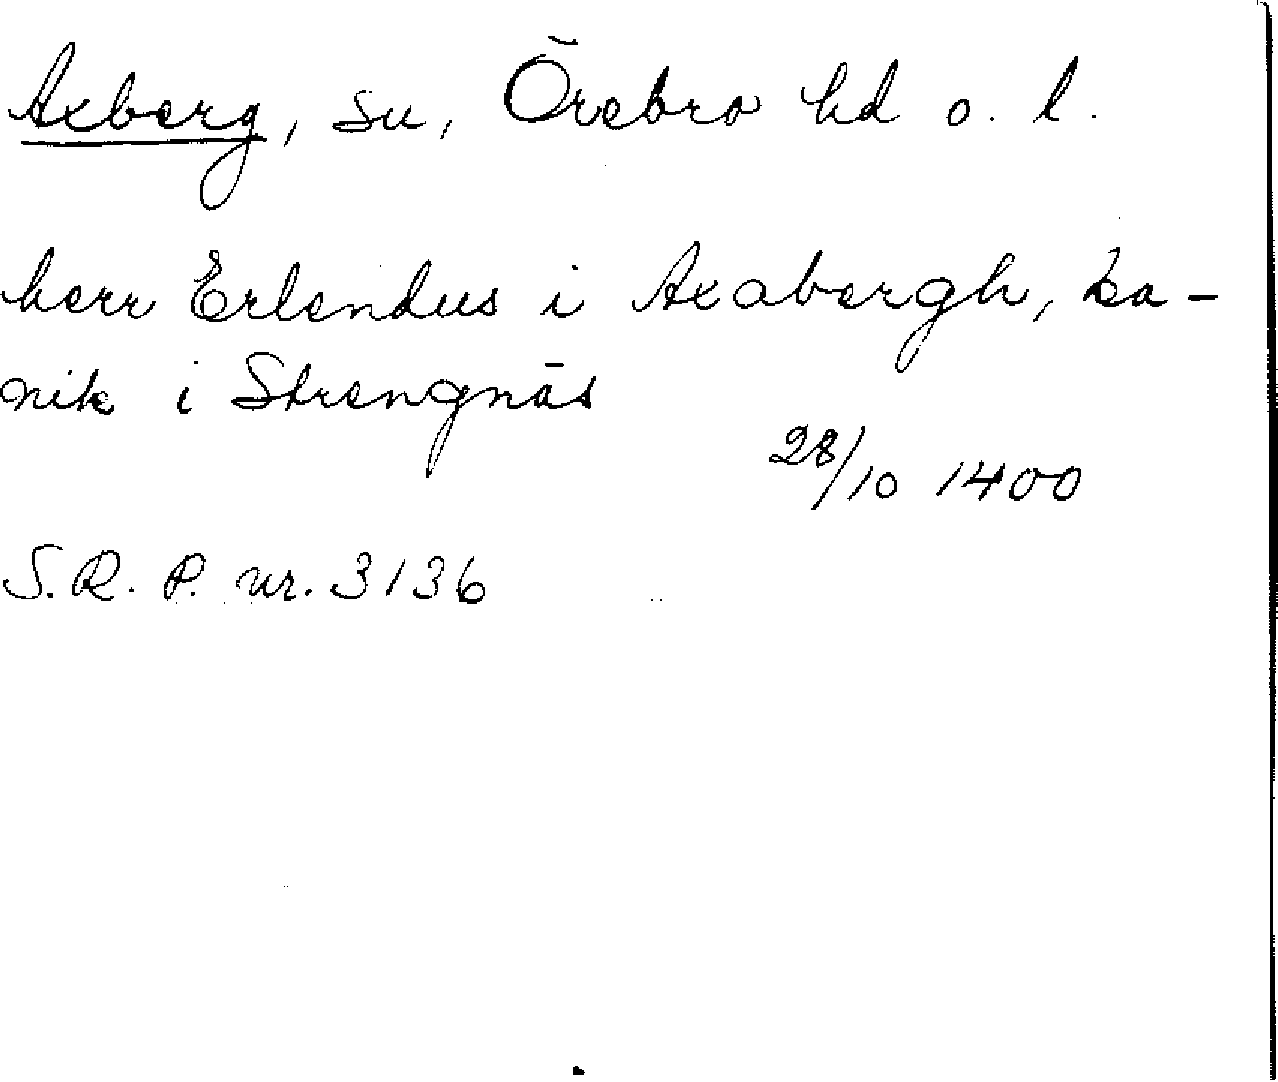 Axberg, su, Örebro hd o. l.
herr Erlendus i Axabergh, ka-
nik i Strengnäs
28/10 1400
S.R.P. nr. 3136